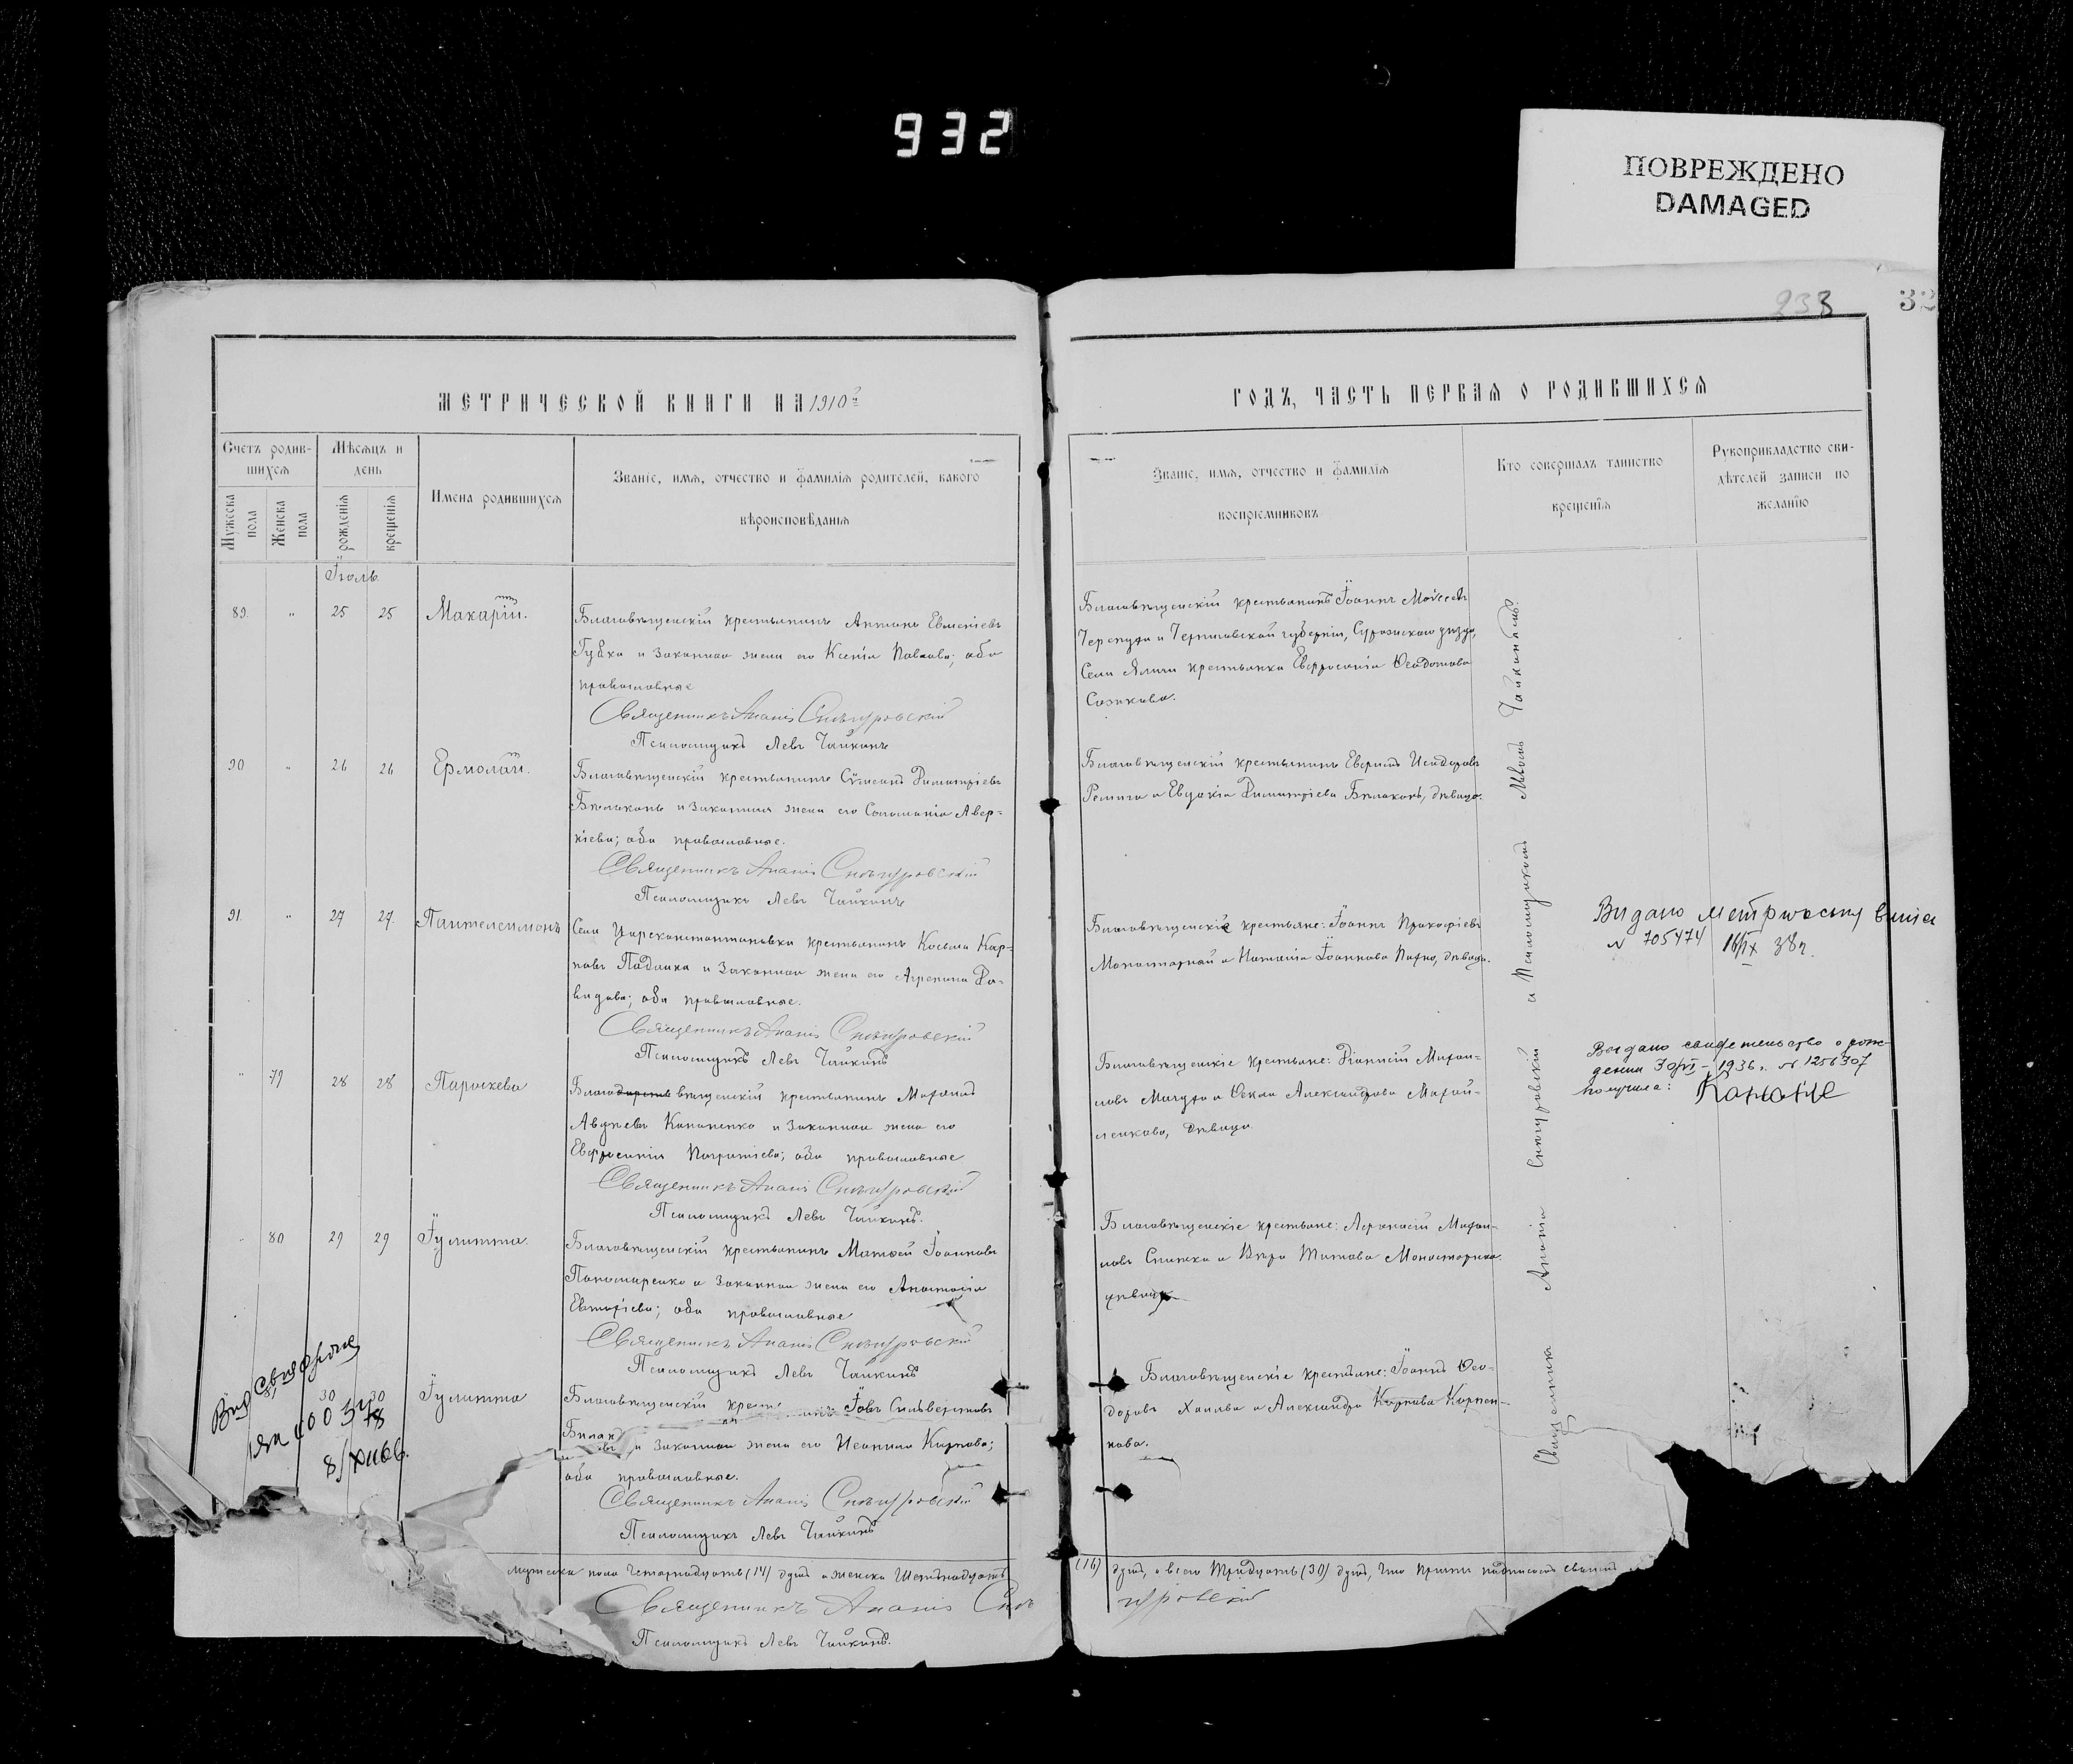 932
ПОВРЕЖДЕНО
DAMAGED
233
32
МЕТРИЧЕСКОЙ КНИГИ НА 1910 г
ГОДЪ, ЧАСТЬ ПЕРВАЯ О РОДИВШИХСЯ
Счетъ родив-
шихся
Мужеска
пола
Женска
пола
Мѣсяцъ и
день
рожденія
крещенія
Имена родившихся
Званіе, имя, отчество и фамилія родителей, какого
вѣроисповѣданія
Званіе, имя, отчество и фамилія
воспріемниковъ
Кто совершалъ таинство
крещенія
Рукоприкладство сви-
дѣтелей записи по
желанію
Іюль
89. " 25 25 Макарій.
Благовѣщенскій крестьянинъ Антонъ Евменіевъ
Губка и законная жена его Ксенія Павлова; оба
православные
Священникъ Ананія Снѣгуровскій
Псаломщикъ Левъ Чайкинъ
Благовѣщенскій крестьянинъ Іоаннъ Моѵсеевъ
Черепуха и Черниговской губерніи, Суражскаго уѣзда,
Села Яличи крестьянка Евфросинія Ѳеодотова
Сазикова.
90 " 26 26 Ермолай.
Благовѣщенскій крестьянинъ Сѵмеонъ Димитріевъ
Бѣлаконь и законная жена его Соломонія Авер-
кіева; оба православные.
Священникъ Ананія Снѣгуровскій
Псаломщикъ Левъ Чайкинъ
Благовѣщенскій крестьянинъ Исидоровъ
и Евдокія Димитріева Бѣлаконь, дѣвица.
91. " 27 27. Пантелеимонъ
Села Цареконстантиновки крестьянинъ Косьма Кар-
повъ и законная жена его Агрепина Да-
видова; оба православные.
Священникъ Ананія Снѣгуровскій
Псаломщикъ Левъ Чайкинъ
Благовѣщенскіе крестьяне: Іоаннъ Прокофіевъ
Монастырный и Наталія Іоаннова дѣвица.
Видано метричсьну випис
N 705474 16/IX 38 р.
" 79 28 28 Параскева
Благовѣщенскій крестьянинъ
Авдѣевъ Кононенко и законная жена его
Евфросинія оба православные
Священникъ Ананія Снѣгуровскій
Псаломщикъ Левъ Чайкинъ.
Благовѣщенскіе крестьяне: Діонисій Михаи-
ловъ и Ѳекла Александрова Михай-
ленкова, дѣвица.
Выдано свидетельство о рож-
дении 30/VI - 1936 г. N 1256307
получила:
" 80 29 29 Іулитта
Благовѣщенскій крестьянинъ Матѳей Іоанновъ
Пономаренко и законная жена его Анастасія
оба православные
Священникъ Ананія Снѣгуровскій
Псаломщикъ Левъ Чайкинъ
Благовѣщенскіе крестьяне: Аѳанасій Михаи-
ловъ и Вѣра Титова
дѣвица
30 30 Іулитта
Благовѣщенскій крест Іовъ Сильвестровъ
и законная жена его Карпова;
оба православные.
Священникъ Ананія Снѣгуровскій
Псаломщикъ Левъ Чайкинъ
Благовѣщенскіе крестьяне: Іоаннъ Ѳео-
доровъ и Александра Карпен-
кова.
Священникъ Ананія Снѣгуровскій и Псаломщикомъ Львомъ Чайкинымъ.
мужеска пола четырнадцать (14) душъ и женска Шестнадцать
(16) душъ, а всего Тридцать (30) душъ, что причтъ подписомъ
Священникъ Ананія Снѣ
гуровскій
Псаломщикъ Левъ Чайкинъ.